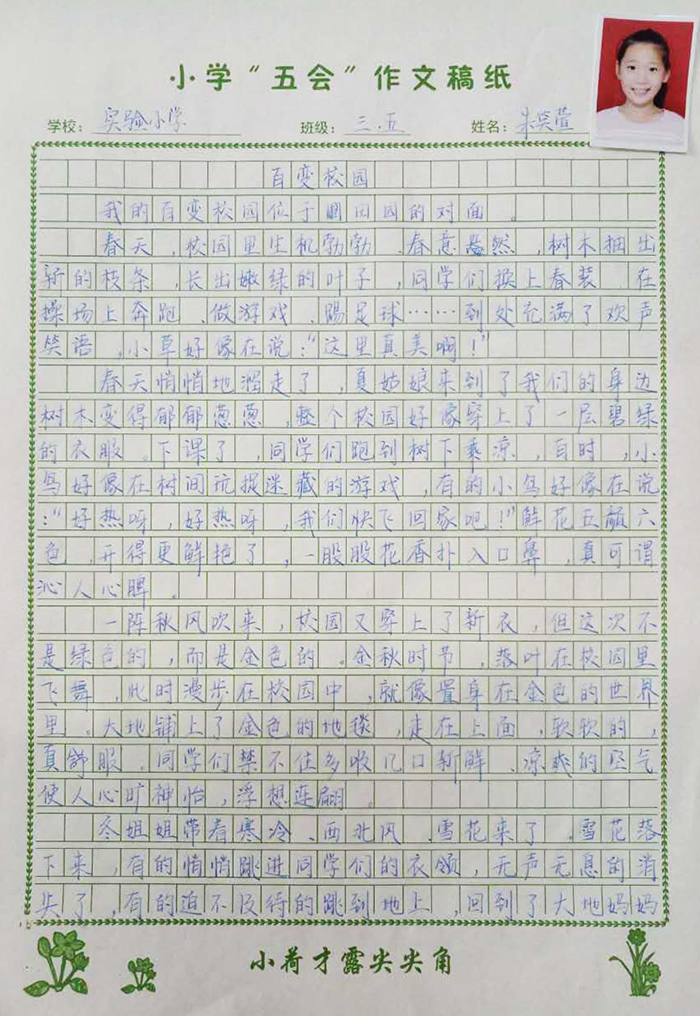 小学“五会”作文稿纸
学校：实验小学 班级：三.五 姓名：朱笑萱
百变校园
我的百变校园位于田园的对面。
春天，校园里生机勃勃、春意盎然，树木抽出
新的枝条，长出嫩绿的叶子，同学们换上春装，在
操场上奔跑、做游戏、踢足球……到处充满了欢声
笑语，小草好像在说：“这里真美啊！”
春天悄悄地溜走了，夏姑娘来到了我们的身边
树木变得郁郁葱葱，整个校园好像穿上了一层碧绿
的衣服。下课了，同学们跑到树下乘凉，有时，小
鸟好像在树间玩捉迷藏的游戏，有的小鸟好像在说
：“好热呀，好热呀，我们快飞回家吧！”鲜花五颜六
色，开得更鲜艳了，一股股花香扑入口鼻，真可谓
沁人心脾。
一阵秋风吹来，校园又穿上了新衣，但这次不
是绿色的，而是金色的。金秋时节，落叶在校园里
飞舞，此时漫步在校园中，就像置身在金色的世界
里。大地铺上了金色的地毯，走在上面，软软的，
真舒服。同学们禁不住多吸几口新鲜、凉爽的空气
使人心旷神怡，浮想连翩。
冬姐姐带着寒冷、西北风、雪花来了。雪花落
下来，有的悄悄跳进同学们的衣领，无声无息的消
失了，有的迫不及待的跳到地上，回到了大地妈妈
小荷才露尖尖角